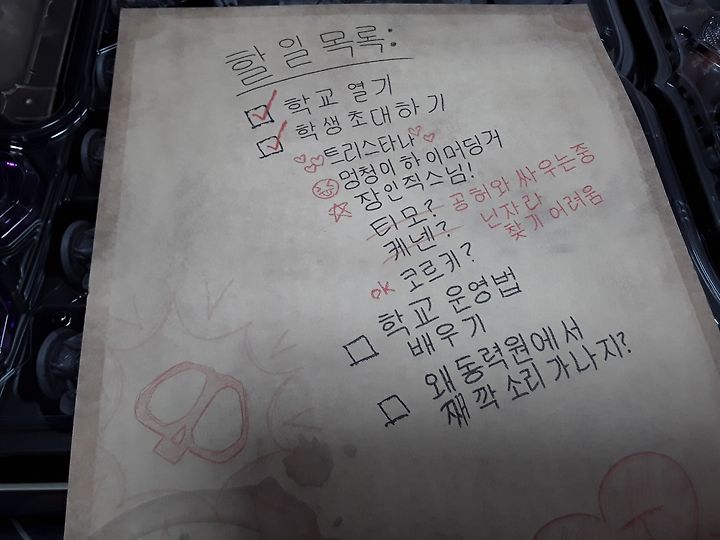 할 일 목록:
학교 열기
학생 초대하기
트리스타나
멍청이 하이머딩거
장인 직스님!
티모? 공허와 싸우는중
케넨? 닌자라
찾기 어려움
OK 코르키?
학교 운영법
배우기
왜 동력원에서
째깍 소리가 나지?